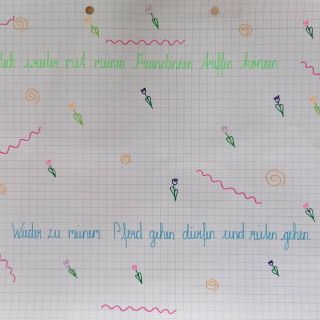 Mich wieder mit meinen Freundinnen treffen können
Wieder zu meinem Pferd gehen dürfen und reiten gehen